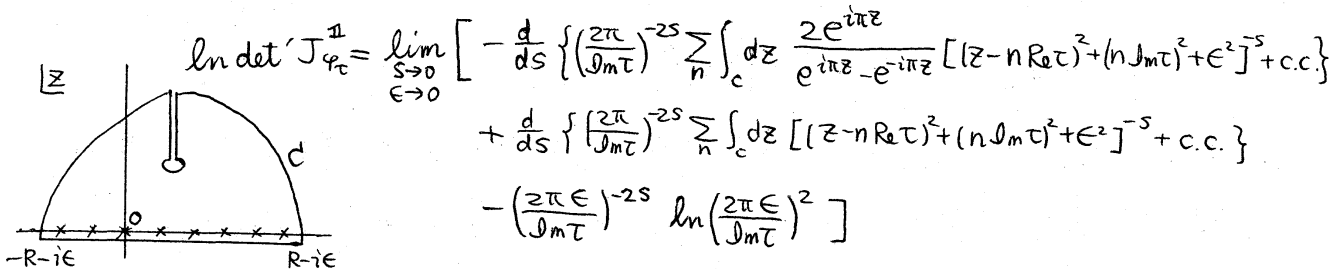 ln det′ J^{II}_{φ_τ} = lim_{s→0, ε→0} [ − d/ds { (2π/Imτ)^{−2s} Σ_n ∫_c dz 2e^{iπz}/(e^{iπz} − e^{−iπz}) [(z − n Reτ)² + (n Imτ)² + ε²]^{−s} + c.c. }
+ d/ds { (2π/Imτ)^{−2s} Σ_n ∫_c dz [(z − n Reτ)² + (n Imτ)² + ε²]^{−s} + c.c. }
− (2πε/Imτ)^{−2s} ln (2πε/Imτ)² ]
z
C
0
−R−iε R−iε